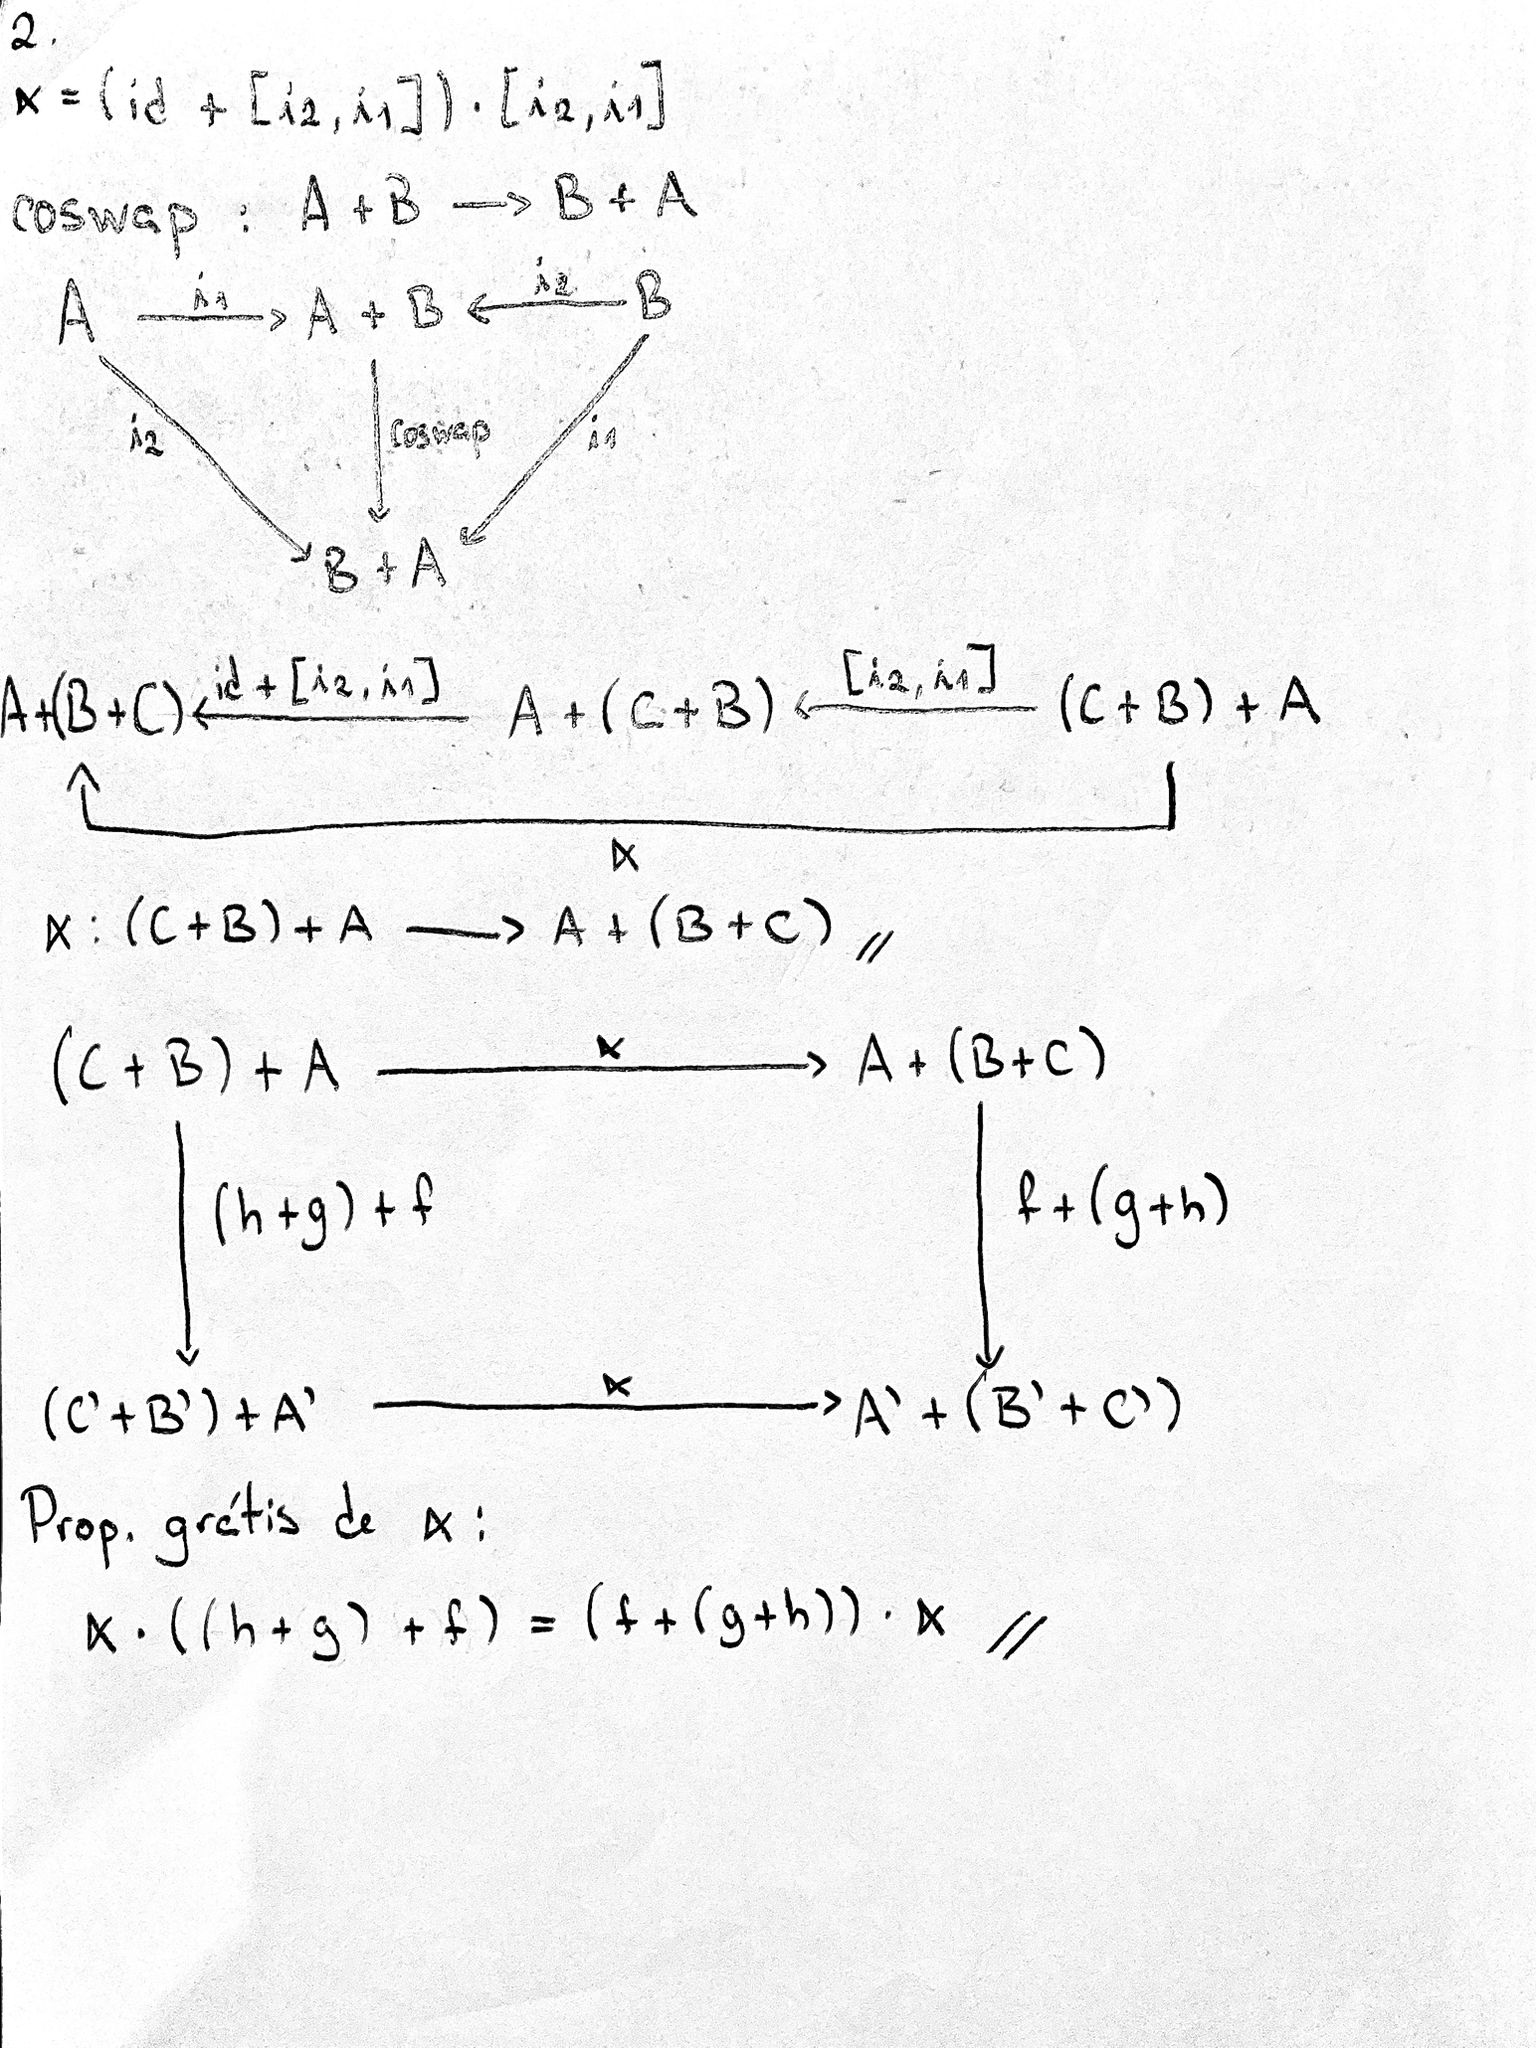 2.
α = (id + [i2, i1]) · [i2, i1]
coswap : A + B → B + A
A i1 → A + B ← i2 B
i2 coswap i1
B + A
A+(B+C) ← id + [i2, i1] A + (C+B) ← [i2, i1] (C+B) + A
α
α : (C+B) + A → A + (B+C) //
(C+B) + A α → A + (B+C)
(h+g) + f f + (g+h)
(C'+B') + A' α → A' + (B'+C')
Prop. grátis de α :
α · ((h+g) + f) = (f + (g+h)) · α //